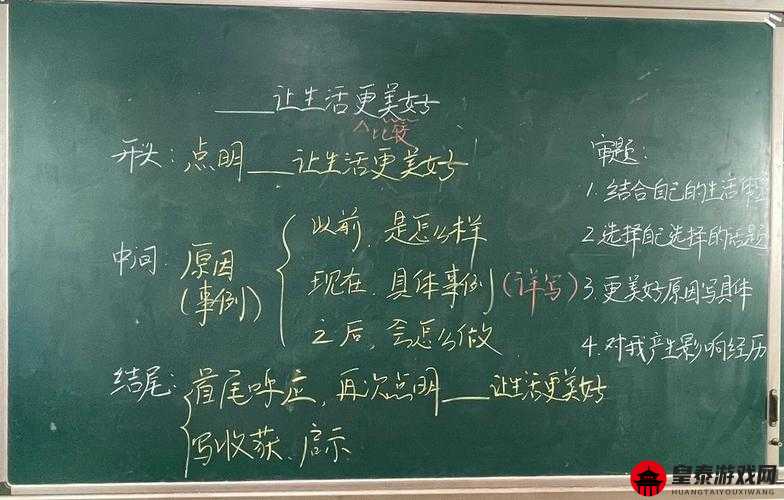 ___让生活更美好
^比较
开头：点明___让生活更美好
中间：原因
(事例)
以前，是怎么样
现在，具体事例(详写)
之后，会怎么做
结尾：首尾呼应，再次点明___让生活更美好
写收获、启示
审题：
1.结合自己的生活体验
2.选择自己选择的话题
3.更美好原因写具体
4.对我产生影响经历
皇泰游戏网
HUANGTAIYOUXIWANG